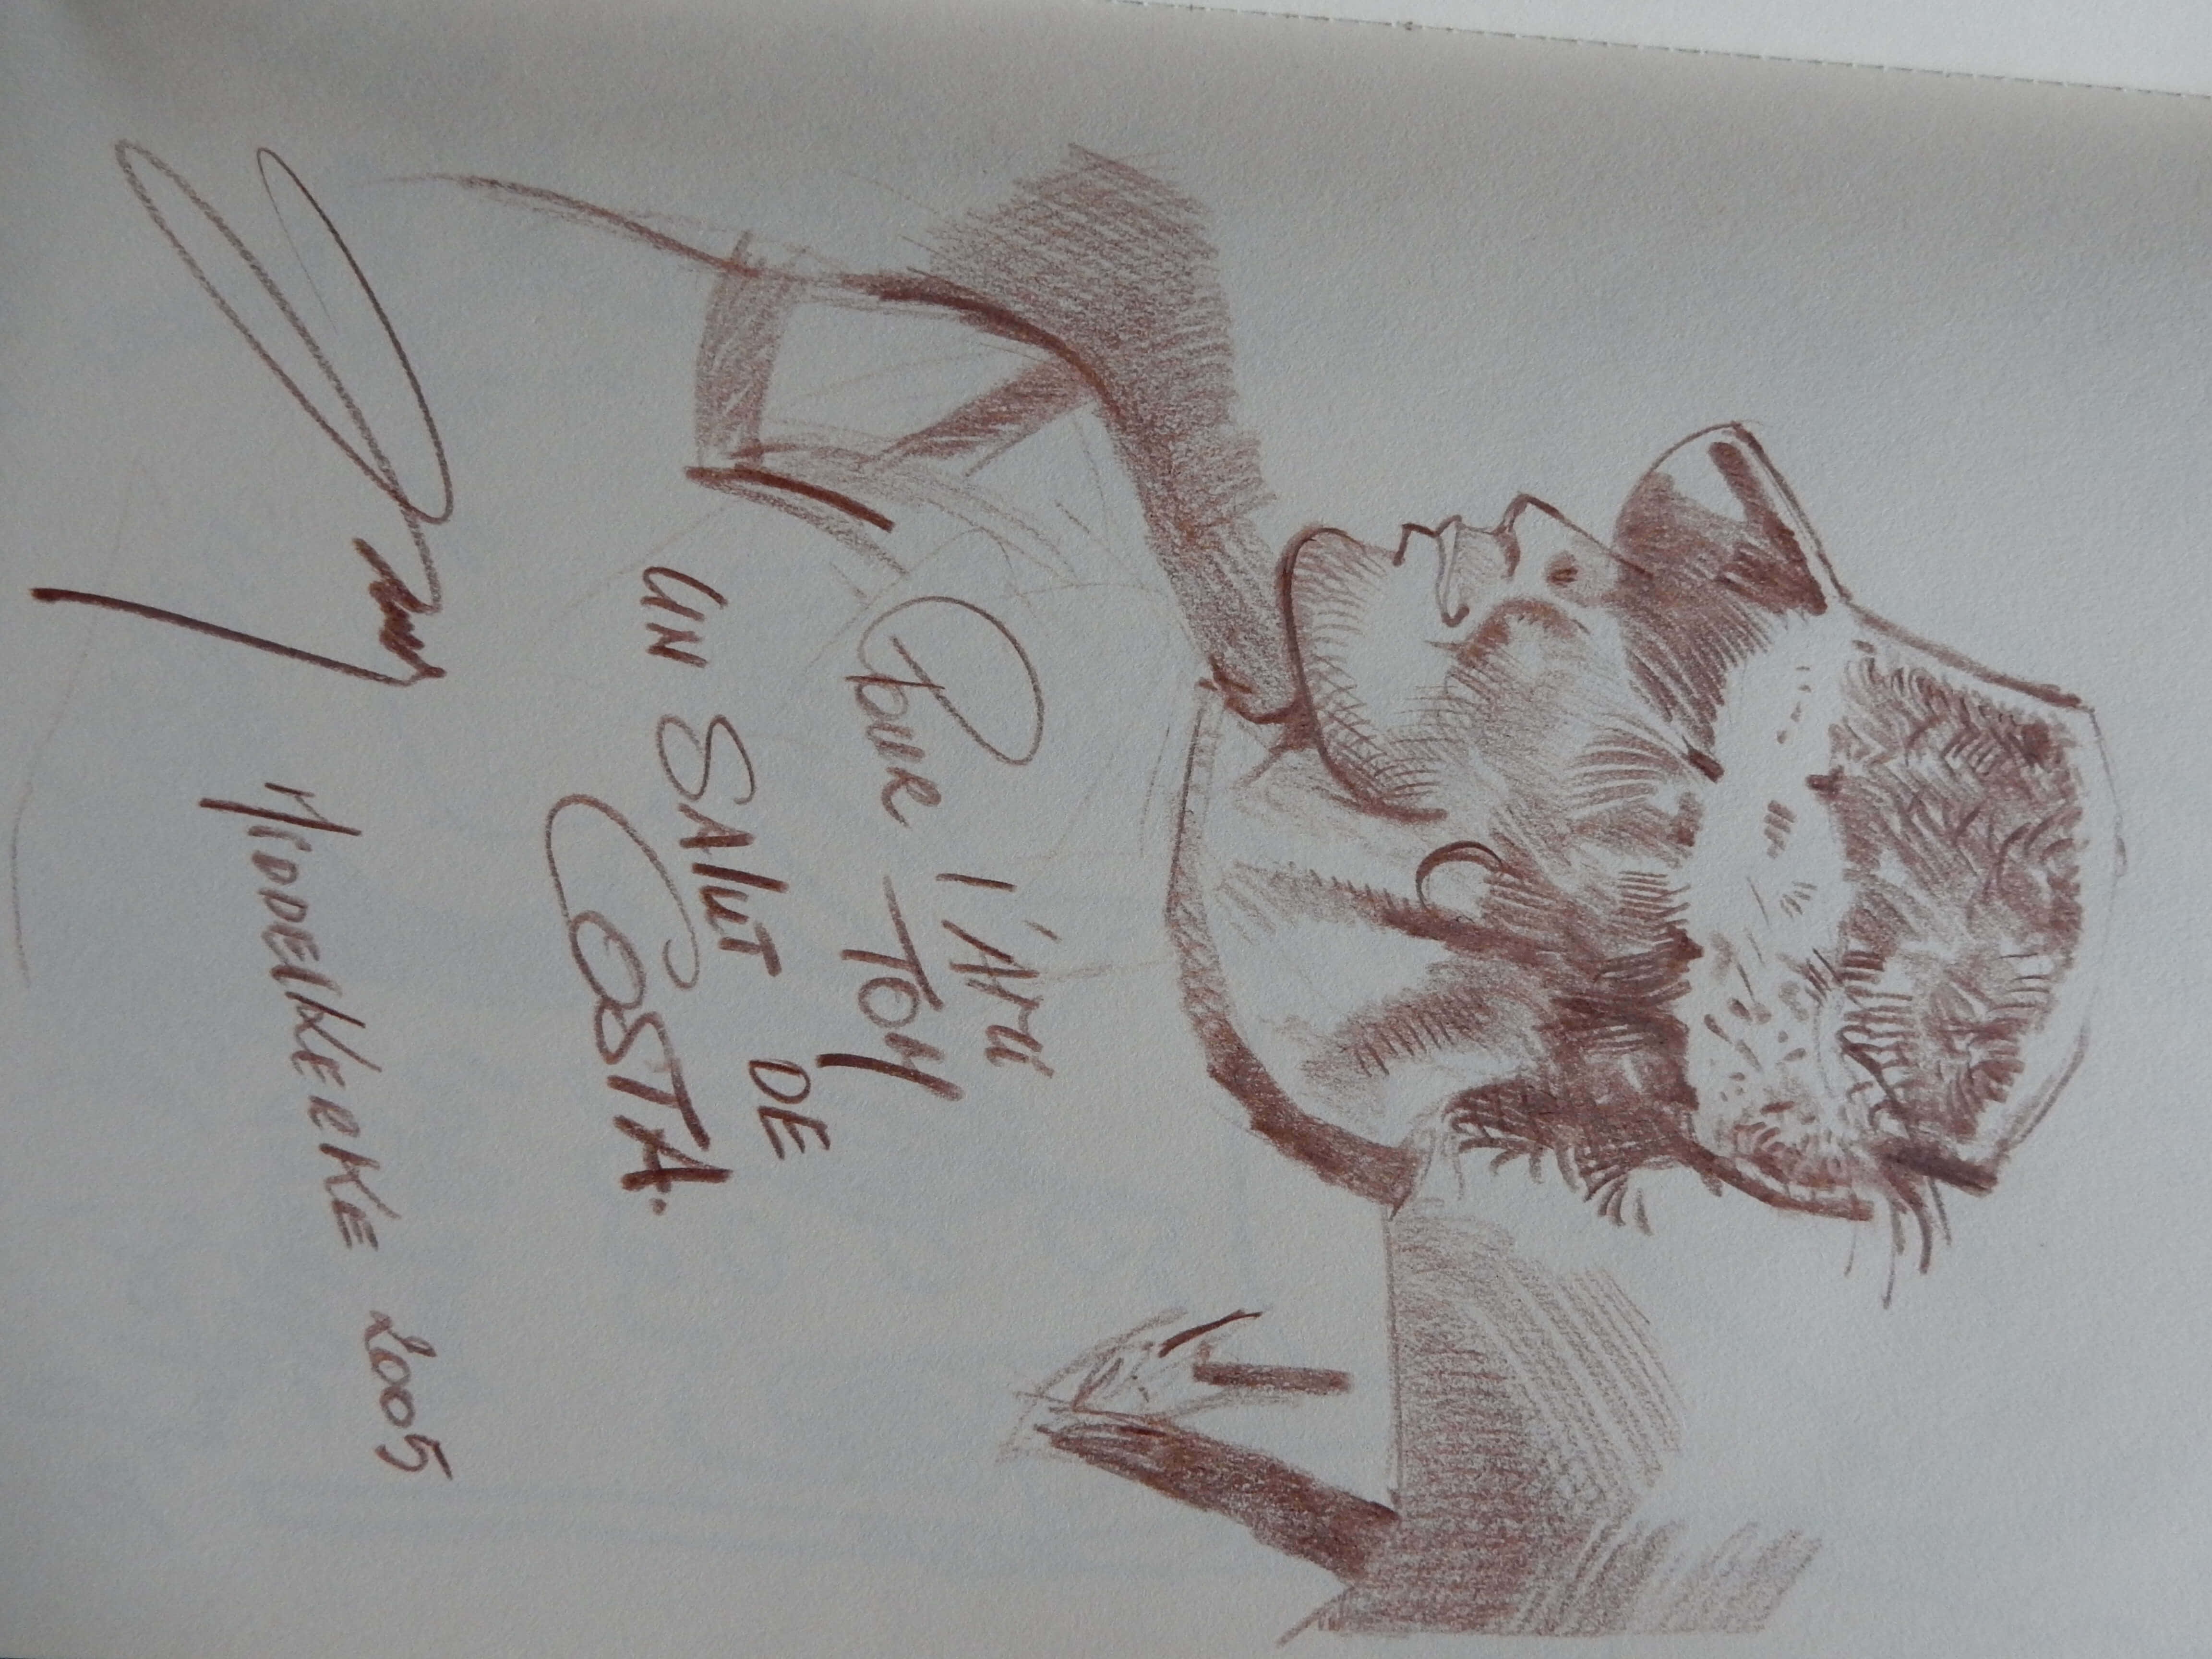 Pour l'Ami
TOM
UN SAlUT DE
COSTA.
MIDDELKERKE 2005